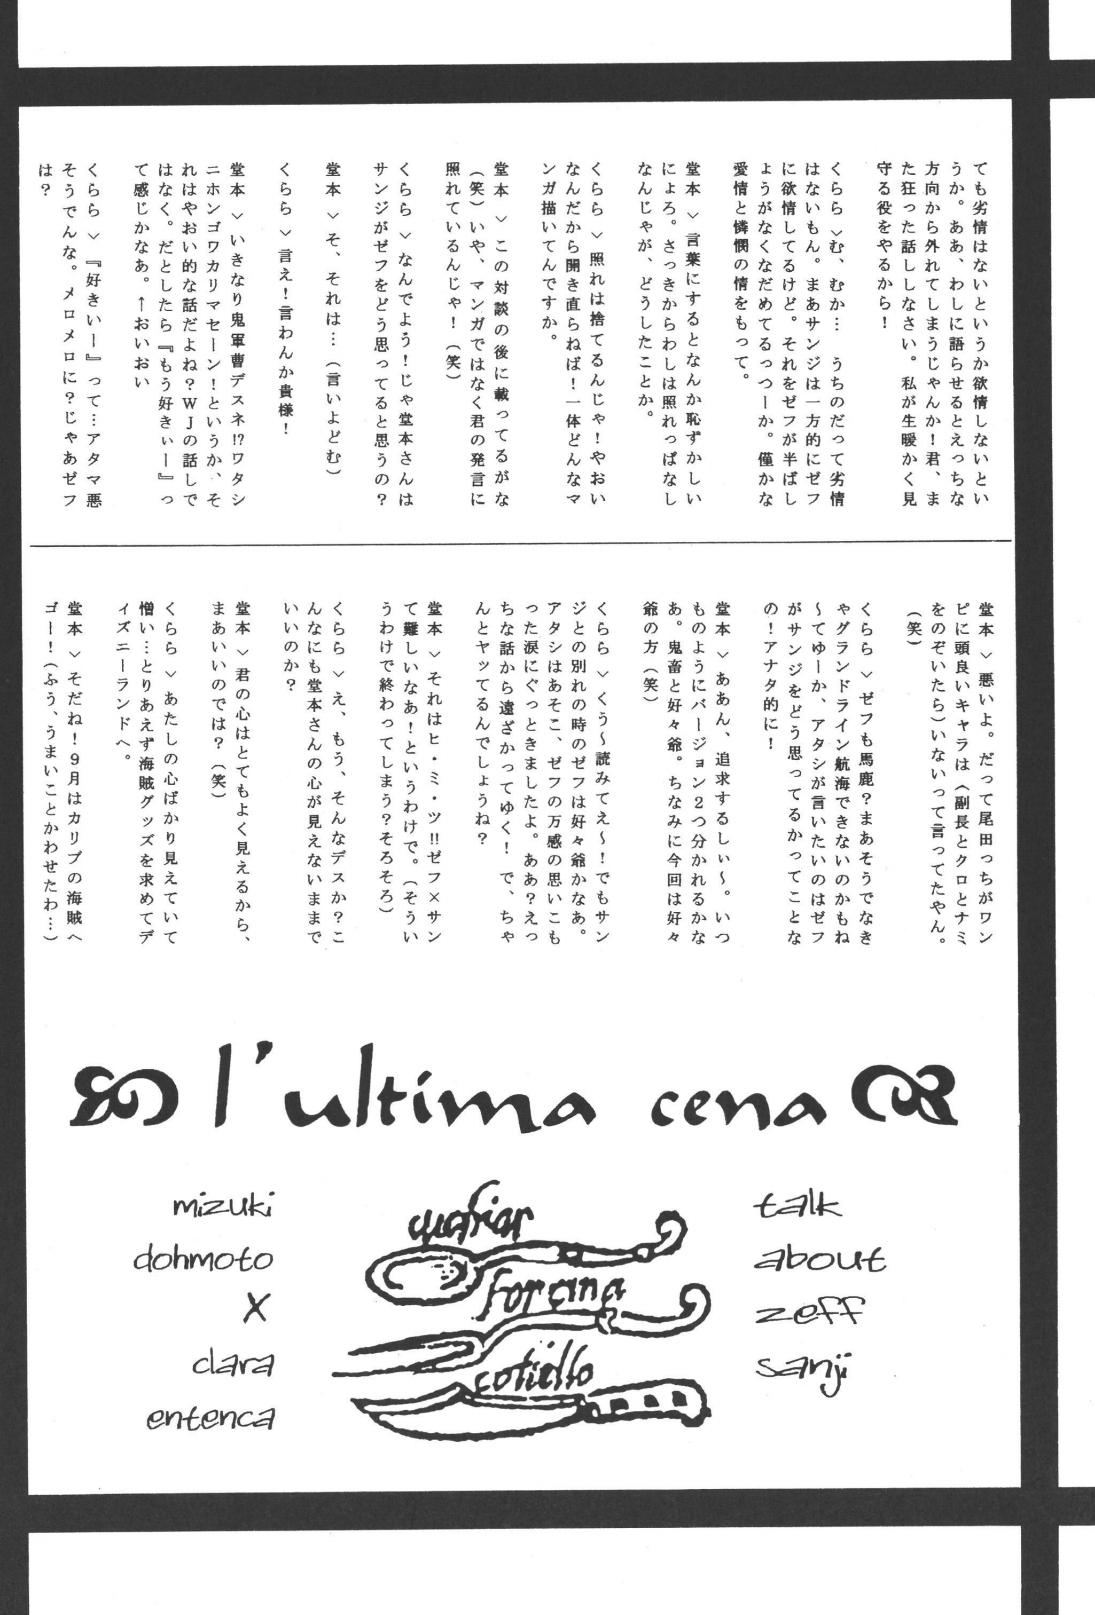 ても劣情はないというか欲情しないとい
うか。ああ、わしに語らせるとえっちな
方向から外れてしまうじゃんか！君、ま
た狂った話ししなさい。私が生暖かく見
守る役をやるから！
くらら＞む、むか… うちのだって劣情
はないもん。まあサンジは一方的にゼフ
に欲情してるけど。それをゼフが半ばし
ょうがなくなだめてるっつーか。僅かな
愛情と憐憫の情をもって。
堂本＞言葉にするとなんか恥ずかしい
にょろ。さっきからわしは照れっぱなし
なんじゃが、どうしたことか。
くらら＞照れは捨てるんじゃ！やおい
なんだから開き直らねば！一体どんなマ
ンガ描いてんですか。
堂本＞この対談の後に載ってるがな
（笑）いや、マンガではなく君の発言に
照れているんじゃ！（笑）
くらら＞なんでよう！じゃ堂本さんは
サンジがゼフをどう思ってると思うの？
堂本＞そ、それは…（言いよどむ）
くらら＞言え！言わんか貴様！
堂本＞いきなり鬼軍曹デスネ!?ワタシ
ニホンゴワカリマセーン！というか、そ
れはやおい的な話だよね？ＷＪの話しで
はなく。だとしたら『もう好きぃー』っ
て感じかなあ。←おいおい
くらら＞『好きいー』って…アタマ悪
そうでんな。メロメロに？じゃあゼフ
は？
堂本＞悪いよ。だって尾田っちがワン
ピに頭良いキャラは（副長とクロとナミ
をのぞいたら）いないって言ってたやん。
（笑）
くらら＞ゼフも馬鹿？まあそうでなき
ゃグランドライン航海できないのかもね
～てゆーか、アタシが言いたいのはゼフ
がサンジをどう思ってるかってことな
の！アナタ的に！
堂本＞ああん、追求するしぃ～。いつ
ものようにバージョン２つ分かれるかな
あ。鬼畜と好々爺。ちなみに今回は好々
爺の方（笑）
くらら＞くう～読みてえ～！でもサン
ジとの別れの時のゼフは好々爺かなあ。
アタシはあそこ、ゼフの万感の思いこも
った涙にぐっときましたよ。ああ？えっ
ちな話から遠ざかってゆく！ で、ちゃ
んとヤッてるんでしょうね？
堂本＞それはヒ・ミ・ツ!!ゼフ×サン
て難しいなあ！というわけで。（そうい
うわけで終わってしまう？そろそろ）
くらら＞え、もう、そんなデスか？こ
んなにも堂本さんの心が見えないままで
いいのか？
堂本＞君の心はとてもよく見えるから、
まあいいのでは？（笑）
くらら＞あたしの心ばかり見えていて
憎い…とりあえず海賊グッズを求めてデ
ィズニーランドへ。
堂本＞そだね！９月はカリブの海賊へ
ゴー！（ふう、うまいことかわせたわ…）
l'ultima cena
mizuki
dohmoto
X
clara
entenca
forcina
cotiello
talk
about
zeff
sanji